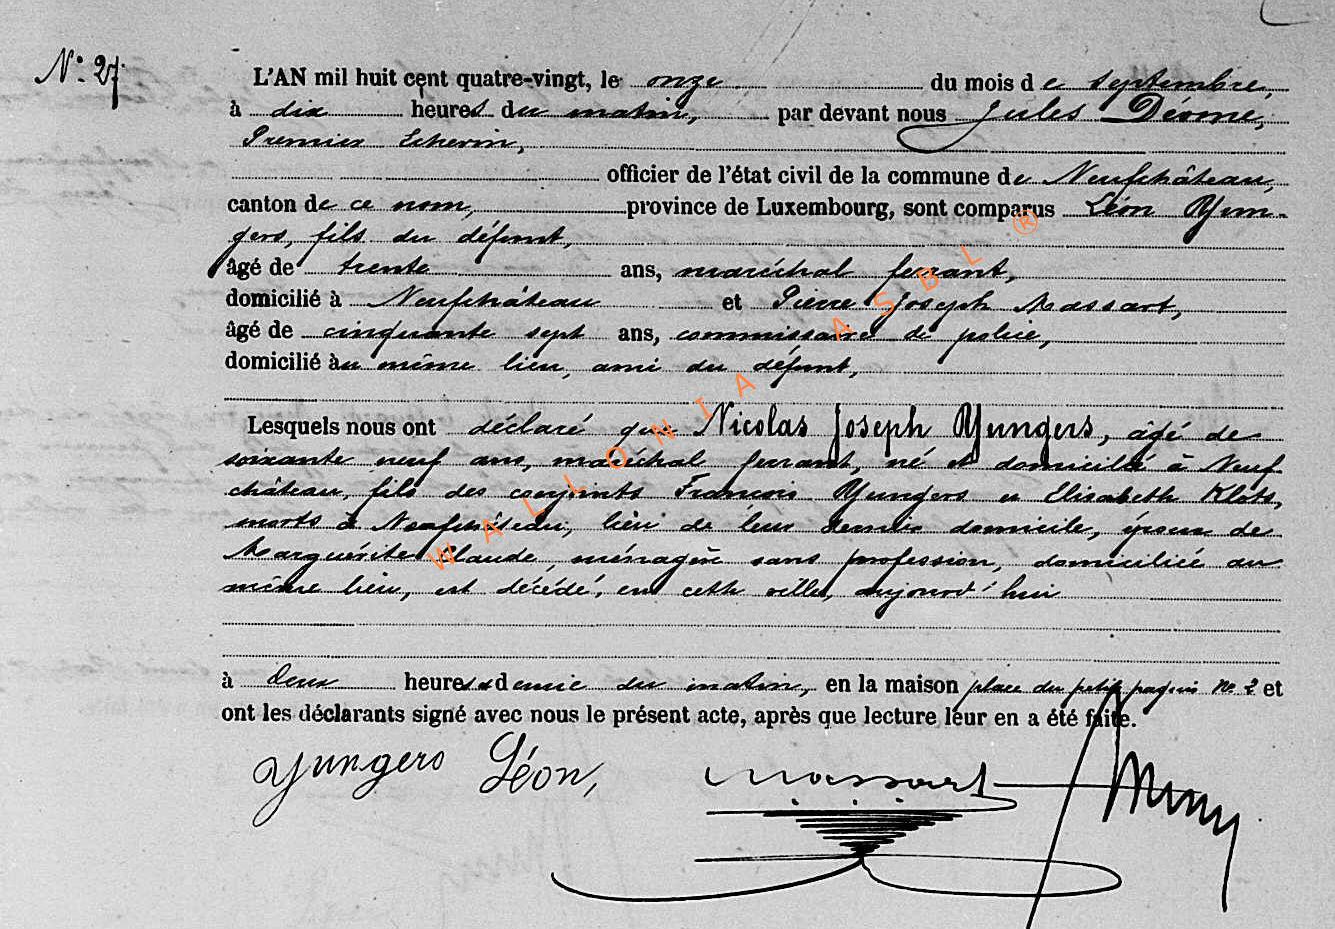 N° 27
L'AN mil huit cent quatre-vingt, le onze du mois de septembre,
à dix heures du matin, par devant nous Jules Dérome,
Premier Echevin,
officier de l'état civil de la commune de Neufchâteau,
canton de ce nom, province de Luxembourg, sont comparus Léon Yun-
gers, fils du défunt,
âgé de trente ans, maréchal ferrant,
domicilié à Neufchâteau et Pierre Joseph Massart,
âgé de cinquante sept ans, commissaire de police,
domicilié au même lieu, ami du défunt,
Lesquels nous ont déclaré que Nicolas Joseph Yungers, âgé de
soixante neuf ans, maréchal ferrant, né et domicilié à Neuf
château, fils des conjoints François Yungers et Elisabeth Klots,
morts à Neufchâteau, lieu de leur dernier domicile, époux de
Marguérite Claude, ménagère sans profession, domiciliée au
même lieu, est décédé, en cette ville, aujourd'hui
à deux heures et demie du matin, en la maison place du petit N° 2 et
ont les déclarants signé avec nous le présent acte, après que lecture leur en a été faite.
Yungers Léon, Massart
WALLONIA ASBL ®